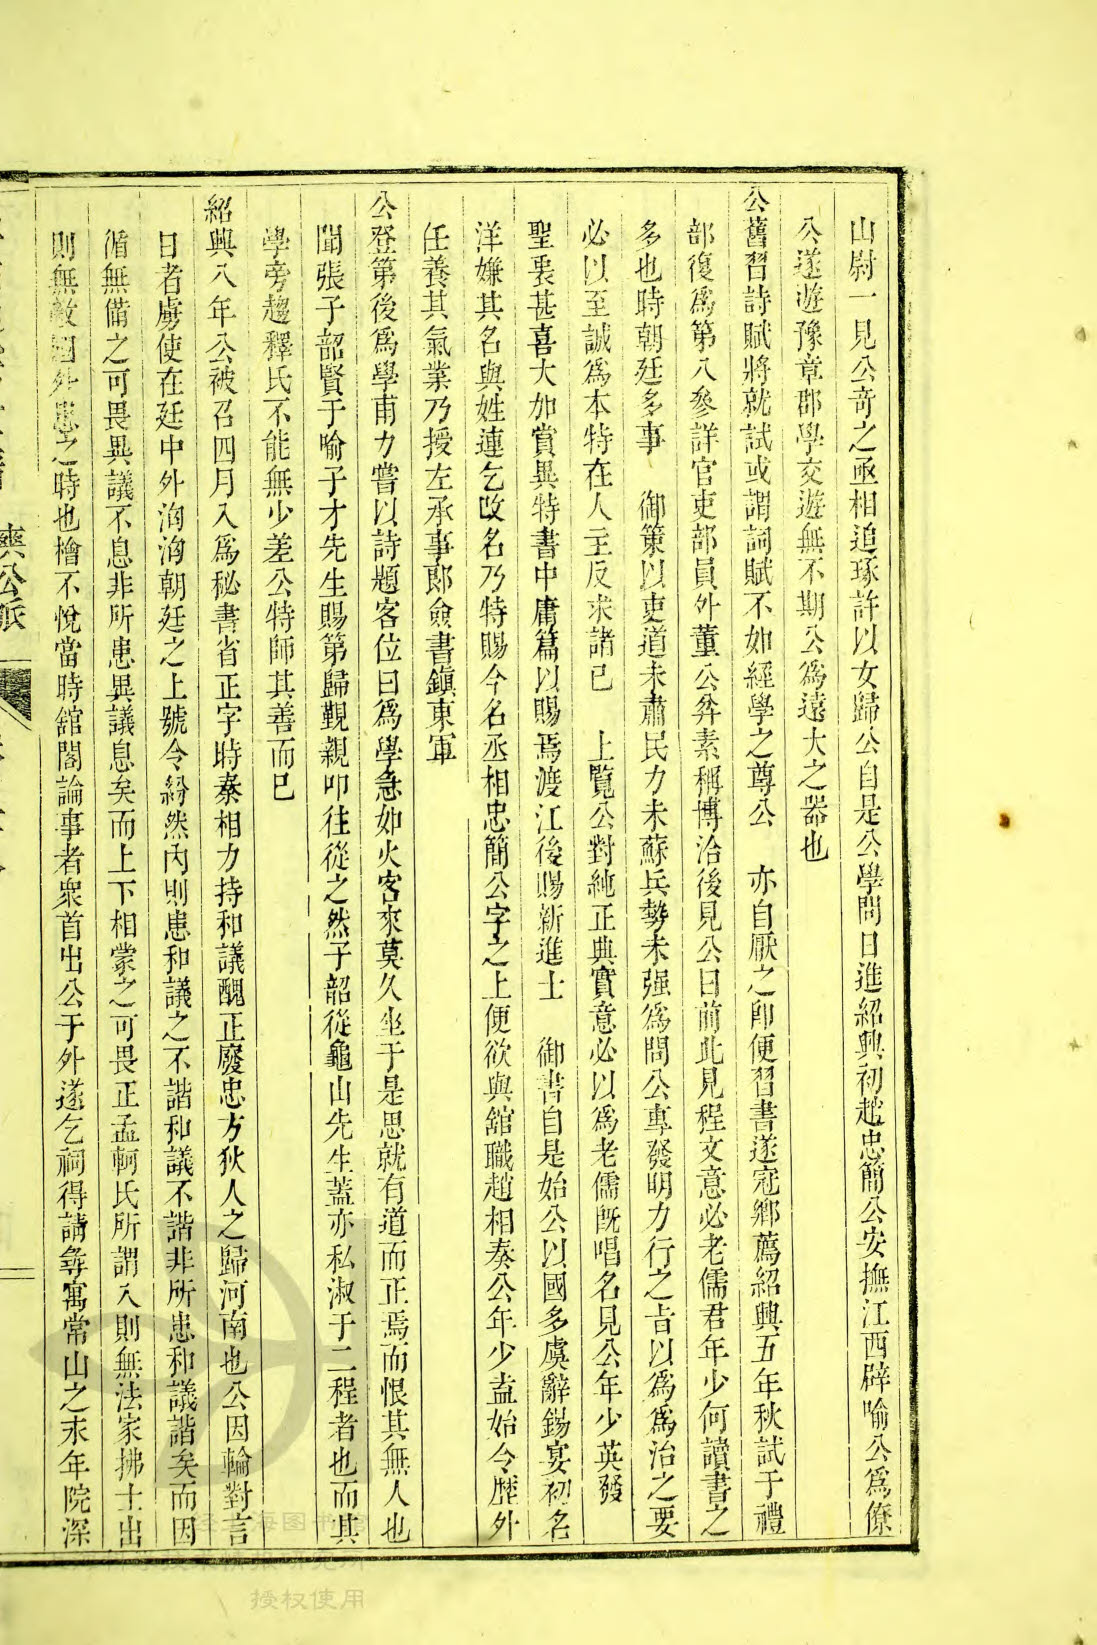 山尉一見公奇之亟相追琢許以女歸公自是公學問日進紹興初趙忠簡公安撫江西辟喻公爲僚
公遂遊豫章郡學交遊無不期公爲遠大之器也
公舊習詩賦將就試或謂詞賦不如經學之尊公　亦自厭之卽便習書遂冠鄉薦紹興五年秋試于禮
部復爲第八參詳官吏部員外董公弅素稱博洽後見公曰前此見程文意必老儒君年少何讀書之
多也時朝廷多事　御策以吏道未肅民力未蘇兵勢未强爲問公專發明力行之旨以爲爲治之要
必以至誠爲本特在人主反求諸已　上覽公對純正典實意必以爲老儒旣唱名見公年少英發
聖衷甚喜大加賞異特書中庸篇以賜焉渡江後賜新進士　御書自是始公以國多虞辭錫宴初名
洋嫌其名與姓連乞改名乃特賜今名丞相忠簡公字之上便欲與舘職趙相奏公年少盍始令歷外
任養其氣業乃授左承事郎僉書鎭東軍
公登第後爲學甫力嘗以詩題客位曰爲學急如火客來莫久坐于是思就有道而正焉而恨其無人也
聞張子韶賢于喻子才先生賜第歸覲親叩往從之然子韶從龜山先生蓋亦私淑于二程者也而其
學旁趨釋氏不能無少差公特師其善而已
紹興八年公被召四月入爲秘書省正字時秦相力持和議醜正廢忠方狄人之歸河南也公因輪對言
日者虜使在廷中外洶洶朝廷之上號令紛然內則患和議之不諧和議不諧非所患和議諧矣而因
循無備之可畏異議不息非所患異議息矣而上下相蒙之可畏正孟軻氏所謂入則無法家拂士出
則無敵國外患之時也檜不悅當時舘閣論事者衆首出公于外遂乞祠得請尋寓常山之永年院深
濟公派
授权使用